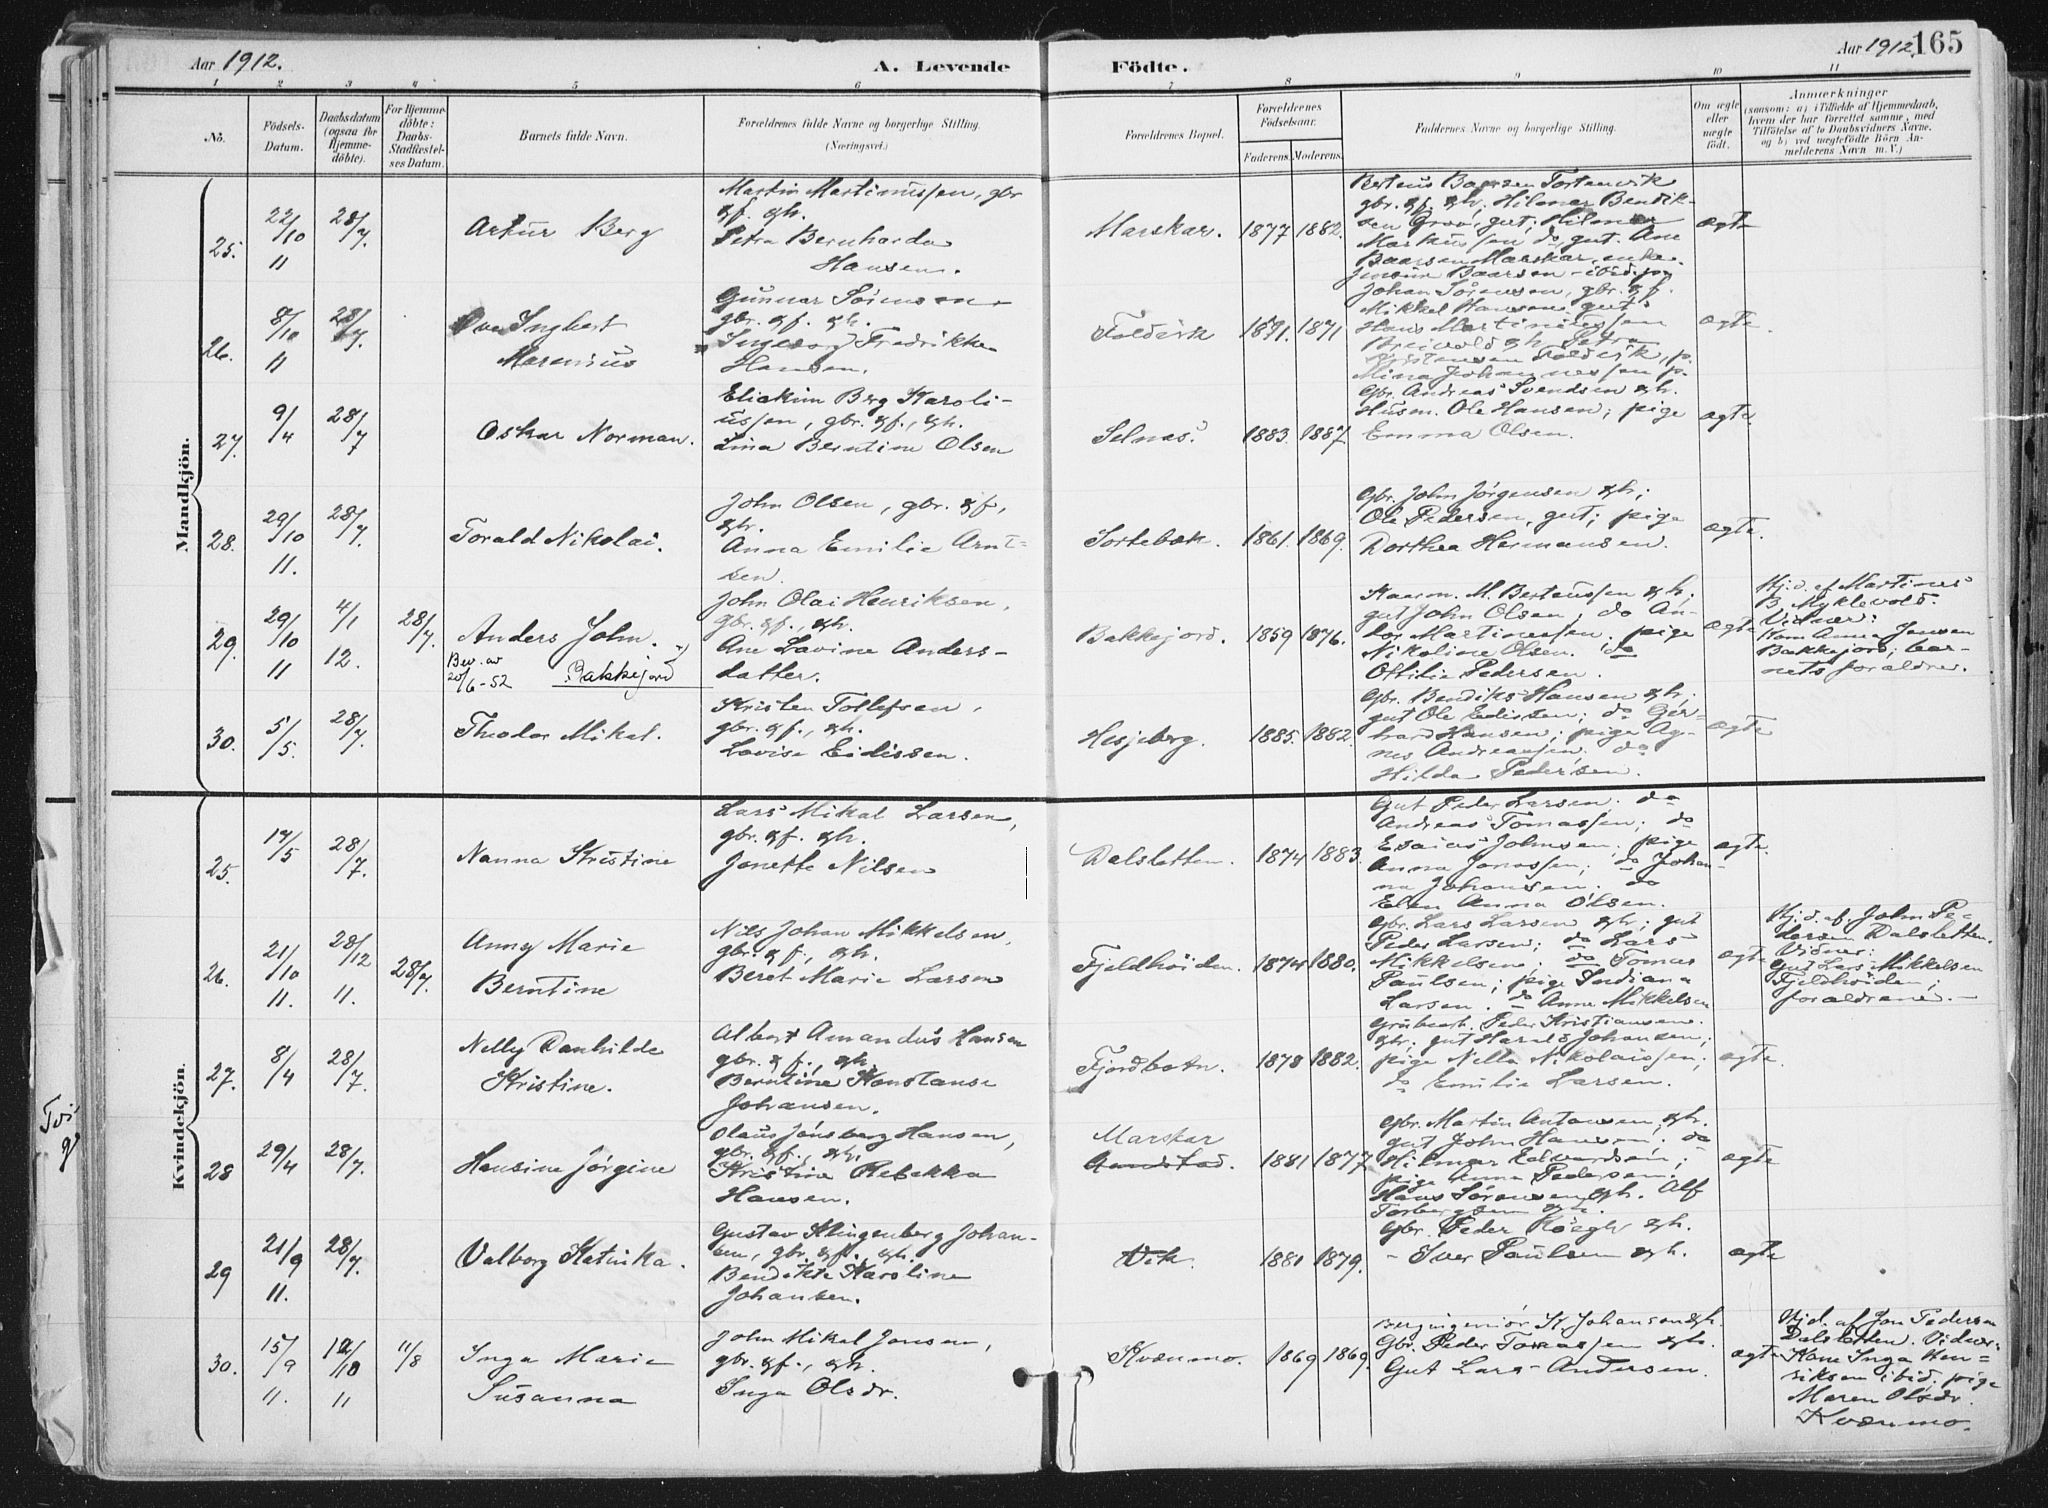 Aar 1912.
A. Levende Födte.
Aar 1912. 165
1 2 3 4 5 6 7 8 9 10 11
No.
Födsels-
Datum.
Daabsdatum
(ogsaa for
Hjemme-
döbte).
For Hjemme-
döbte:
Daabs-
Stadfæstel-
ses Datum.
Barnets fulde Navn.
Forældrenes fulde Navne og borgerlige Stilling.
(Næringsvei.)
Forældrenes Bopæl.
Forældrenes
Födselsaar.
Faderens. Moderens.
Faddernes Navne og borgerlige Stilling.
Om ægte
eller
uægte
födt.
Anmærkninger
(saasom: a) i Tilfælde af Hjemmedaab,
hvem der har forrettet samme, med
Tilföielse af to Daabsvidners Navne,
og b) ved uægtefödte Börn An-
melderens Navn m. V.)
Mandkjön.
25.
22/10
11
28/7.
Artur Berg
Martin Martinussen, gbr
&f. &h.
Petra Bernharda
Hansen.
Marskar. 1877 1882.
Berteus Baarsen Tortenvik
gbr. &f. &h; Hilmar Bendik-
sen Grovi, gut; Hilmar
Markussen do, gut. Ane
Baarsen Marskar, enke.
Jensine Baarsen - ibid. pg
ægte
26.
8/10
11
28/7.
Ingbert
Marenius
Gunnar Sörensen
gbr. &f. &h.
Ingeborg Fredrikke
Hansen.
Foldvik 1891. 1871
Johan Sörensen, gbr. &f.
Mikkel Hansen gut;
Hans Martinussen
Breivold &h. Petra
Kristensen Foldvik, p.
Mina Johannessen p.
ægte.
27.
9/4
28/7
Oskar Norman.
Eliakim Berg Karoli-
ussen, gbr. &f., &h.
Lina Berntine Olsen
Selnæs. 1883. 1887.
Gbr. Andreas Svendsen &h.
Husm. Ole Hansen; pige
Emma Olsen.
ægte.
28.
29/10
11.
28/7.
Torald Nikolai.
John Olsen, gbr. &f,
&h.
Anna Emilie Arnt-
sen.
Sortebæk. 1861. 1869.
Gbr. John Jörgensen &h;
Ole Pedersen, gut; pige
Dorthea Hermansen.
ægte.
29.
29/10
11
4/1
12.
28/7
Anders John.
Bev. av
20/6-52 Bakkejord
John Olai Henriksen,
gbr. &f., &h.
Ane Lovine Anders-
datter.
Bakkejord. 1859 1876.
M. Berteussen &h;
gut John Olsen, do An-
dor Martinessen. pige
Nikoline Olsen. do
Ottilie Pedersen.
ægte
Hj. d. af Martines
B. Myklevold.
Vidner:
Kom Anna Jensen
Bakkejord; bar-
nets foraldre.
30.
5/5.
28/7.
Theodor Mikal.
Kristen Tollefsen,
gbr. &f., &h.
Lovise Eidissen.
Hesjeberg. 1885. 1882.
Gbr. Bendiks Hansen &h;
gut Ole Edissen; do Ger-
hard Hansen; pige Ag-
nes Andreassen. do
Hilda Pedersen.
ægte
Kvindekjön.
25.
17/5
28/7.
Nanna Kristine
Lars Mikal Larsen,
gbr. &f. &h.
Jonette Nilsen
Dalsletten. 1874 1883.
Gut Peder Larsen. do
Andreas Tomassen; do
Esaias Johnsen. pige
Anna Jonassen; do Johan-
na Johansen. do
Elen Anna Olsen.
ægte.
26.
21/10
11.
28/12
11.
28/7.
Anny Marie
Berntine
Nils Johan Mikkelsen,
gbr. &f, &h.
Beret Marie Larsen
Fjeldhöiden. 1874 1880.
Gbr. Lars Larsen &h; gut
Peder Larsen; do Lars
Mikkelsen. do Tomas
Paulsen; pige Indiana
Larsen. do Anne Mikkelsen
ægte
Hj. d. af. John Pe-
dersen Dalsletten.
Vidner:
Gut Lars Mikkelsen
Fjeldhöiden;
foraldrene. -
27.
8/4
28/7.
Nelly Danhilde
Kristine.
Albert Amandus Hansen
gbr. &f, &h.
Berntine Konstanse
Johansen.
Fjordbotn. 1878 1882.
Grubearb. Peder Kristiansen.
&h; gut Harald Johansen;
pige Nella Nikolaissen;
do Emilie Larsen.
ægte
28
29/4
28/7.
Hansine Jörgine
Olaus Jönsberg Hansen,
gbr. &f., &h.
Kristine Rebekka
Hansen.
Marskar
Aanstad. 1881 1877
Gbr. Martin Antonsen &h.
gut John Hansen. do
Hilmar Edvardsen;
pige Anna Pedersen.
Hans Sörensen &h. Alf
Torbergsen &h.
ægte
29
21/9
11.
28/7.
Valborg Katinka.
Gustav Klingenberg Johan-
sen, gbr. &f. &h.
Bendikte Karoline
Johansen.
Vik. 1881 1879.
Gbr. Peder Röegh &h.
- Iver Paulsen &h.
ægte
30.
15/9
11.
12/10
11
11/8
Inga Marie
Susanna
John Mikal Jonsen,
gbr. &f., &h.
Inga Olsdr.
Kvænmo. 1869 1869.
Bergingeniör K. Johansen &h.
Gbr. Peder Tomassen &h.
Gut Lars Andersen.
ægte
Hjd. af Jon Pedersen
Dalsletten. Vidner:
Kone Inga Hen-
riksen ibid. pige
Maren Olsdr.
Kvænmo.